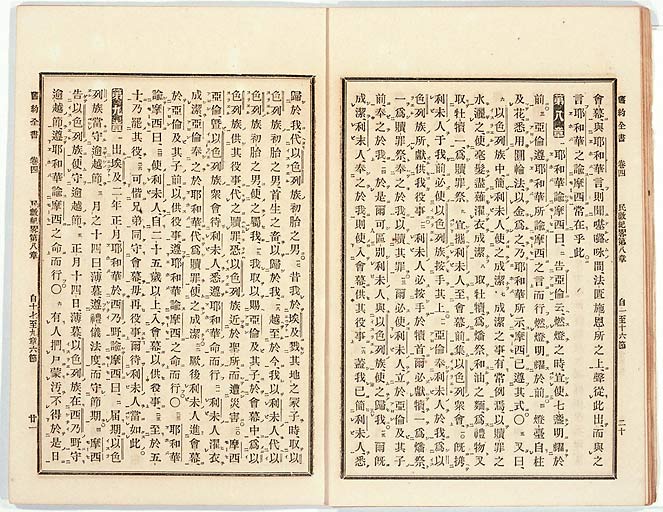 舊約全書 卷四 民數紀畧第八章 自一至十六節 二十
會幕與耶和華言則聞基路咏間法匱施恩所之上聲從此出而與之
言耶和華之諭摩西常在乎此
第八章 耶和華諭摩西曰 告亞倫云燃燈之時宜使七盞明耀於
前 亞倫遵耶和華所諭摩西之言而行燃燈明耀於前 燈臺自柱
及花悉用圓輪法以金爲之乃耶和華所示摩西已遵其式〇 又曰
以色列族中簡利未人使之成潔 成潔之事有常例焉以贖罪之
水灑之使毫髮盡薙濯衣成潔 取牡犢爲燔祭和油之麵爲禮物又
取牡犢一爲贖罪祭 宜攜利未人至會幕前集以色列衆會 旣攜
利未人于我前必使以色列族按手其上 亞倫奉利未人於我爲以
色列族所獻供我役事 利未人必按手於犢首爾必獻犢一爲燔祭
一爲贖罪祭奉之於我以贖其罪 爾必使利未人立於亞倫及其子
前奉之於我 於是爾可區別利未人與以色列族使之歸我 爾旣
成潔利未人奉之於我則使入會幕供其役事 蓋我已簡利未人悉
歸於我代以色列族初胎之男 昔我於埃及戮其地之冢子時取以
色列族初胎之男首生之畜以歸於我 越至於今我以利未人代以
色列族初胎之男使之屬我 我取以賜亞倫及其子於會幕中爲以
色列族供其役事代之贖罪恐以色列族近於聖所而遭災害 摩西
亞倫曁以色列族衆會待利未人悉遵耶和華所諭而行 利未人濯衣
成潔亞倫奉之於耶和華代爲贖罪使之成潔 厥後利未人進會幕
於亞倫及其子前以供役事遵耶和華諭摩西之命而行〇 耶和華
諭摩西曰 使利未人自二十五歲以上入會幕以供役事 至於五
十乃罷其役 可偕兄弟同守會幕毋再役事爾待利未人當如此
第九章 出埃及二年正月耶和華於西乃野諭摩西曰 屆期以色
列族當守逾越節 月之十四日薄暮遵禮儀法度而守節期 摩西
告以色列族使守逾越節 正月十四日薄暮以色列族在西乃野守
逾越節遵耶和華諭摩西之命而行〇 有人捫尸蒙汚不得於是日
舊約全書 卷四 民數紀畧第八章 自十七至九章六節 廿一